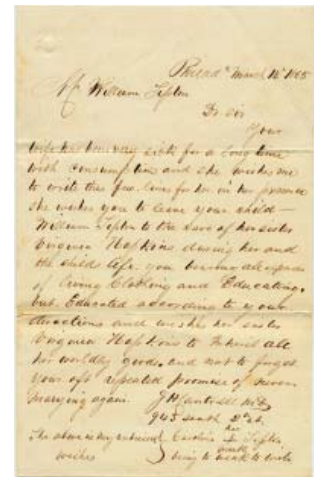 Philad^a March 16^th 1865
Mr William Tipton
Dr Sir
Your
wife has been very sick for a long time
with Consumption and she wishes me
to write this few lines for her in her presence
she wishes you to leave your child —
William Tipton to the Care of her sister
Virginia Hopkins during her and
the childs life. you bearing all expenses
of living Clothing and Educating.
but. Educated according to your
directions and wishes her sister
Virginia Hopkins to Inherit all
her worldly goods. and not to forget
your oft repeated promise of never
marrying again.
J H Cantrell MD
943 South 2^d St.
The above is my enduring Caroline her Tipton
wishes mark
being to weak to write